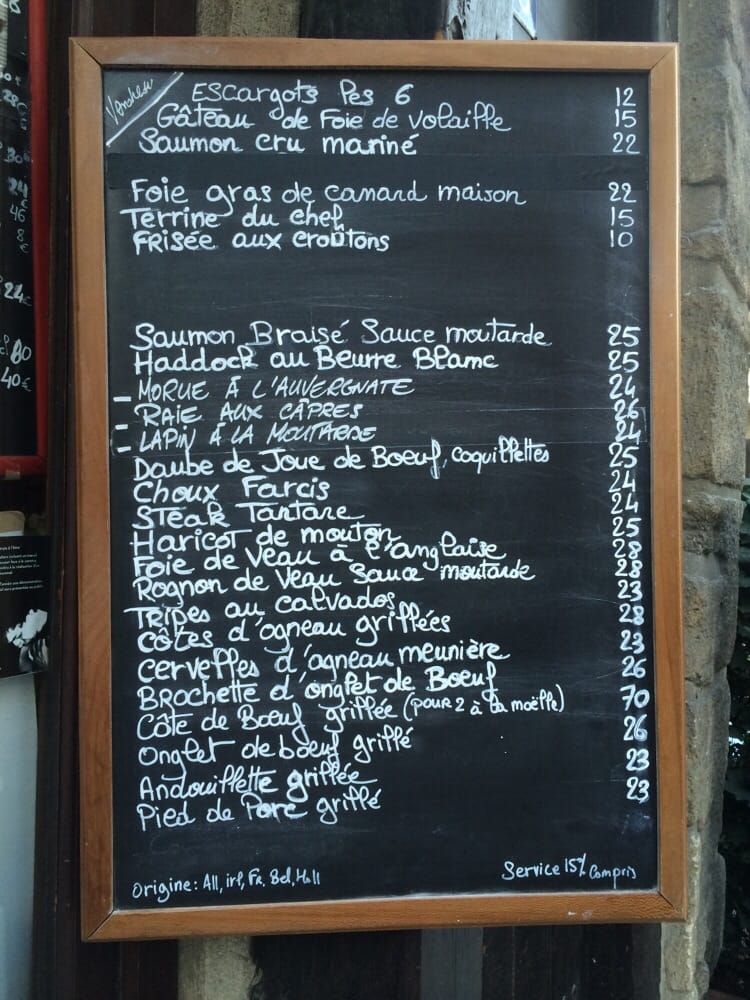 Vendredi
Escargots les 6 12
Gâteau de Foie de volaille 15
Saumon cru mariné 22
Foie gras de canard maison 22
Terrine du chef 15
Frisée aux croûtons 10
Saumon Braisé Sauce moutarde 25
Haddock au Beurre Blanc 25
- MORUE À L'AUVERGNATE 24
- RAIE AUX CÂPRES 26
- LAPIN À LA MOUTARDE 24
Daube de Joue de Boeuf, coquillettes 25
Choux Farcis 24
Steak Tartare 24
Haricot de mouton 25
Foie de Veau à l'anglaise 28
Rognon de Veau Sauce moutarde 28
Tripes au calvados 23
Côtes d'agneau grillées 28
Cervelles d'agneau meunière 23
Brochette d'onglet de Boeuf 26
Côte de Boeuf grillée (pour 2 à la moëlle) 70
Onglet de boeuf grillé 26
Andouillette grillée 23
Pied de Porc grillé 23
Origine: All, irl, Fr, Bel, Holl
Service 15% Compris
46
8
€
24€
40€